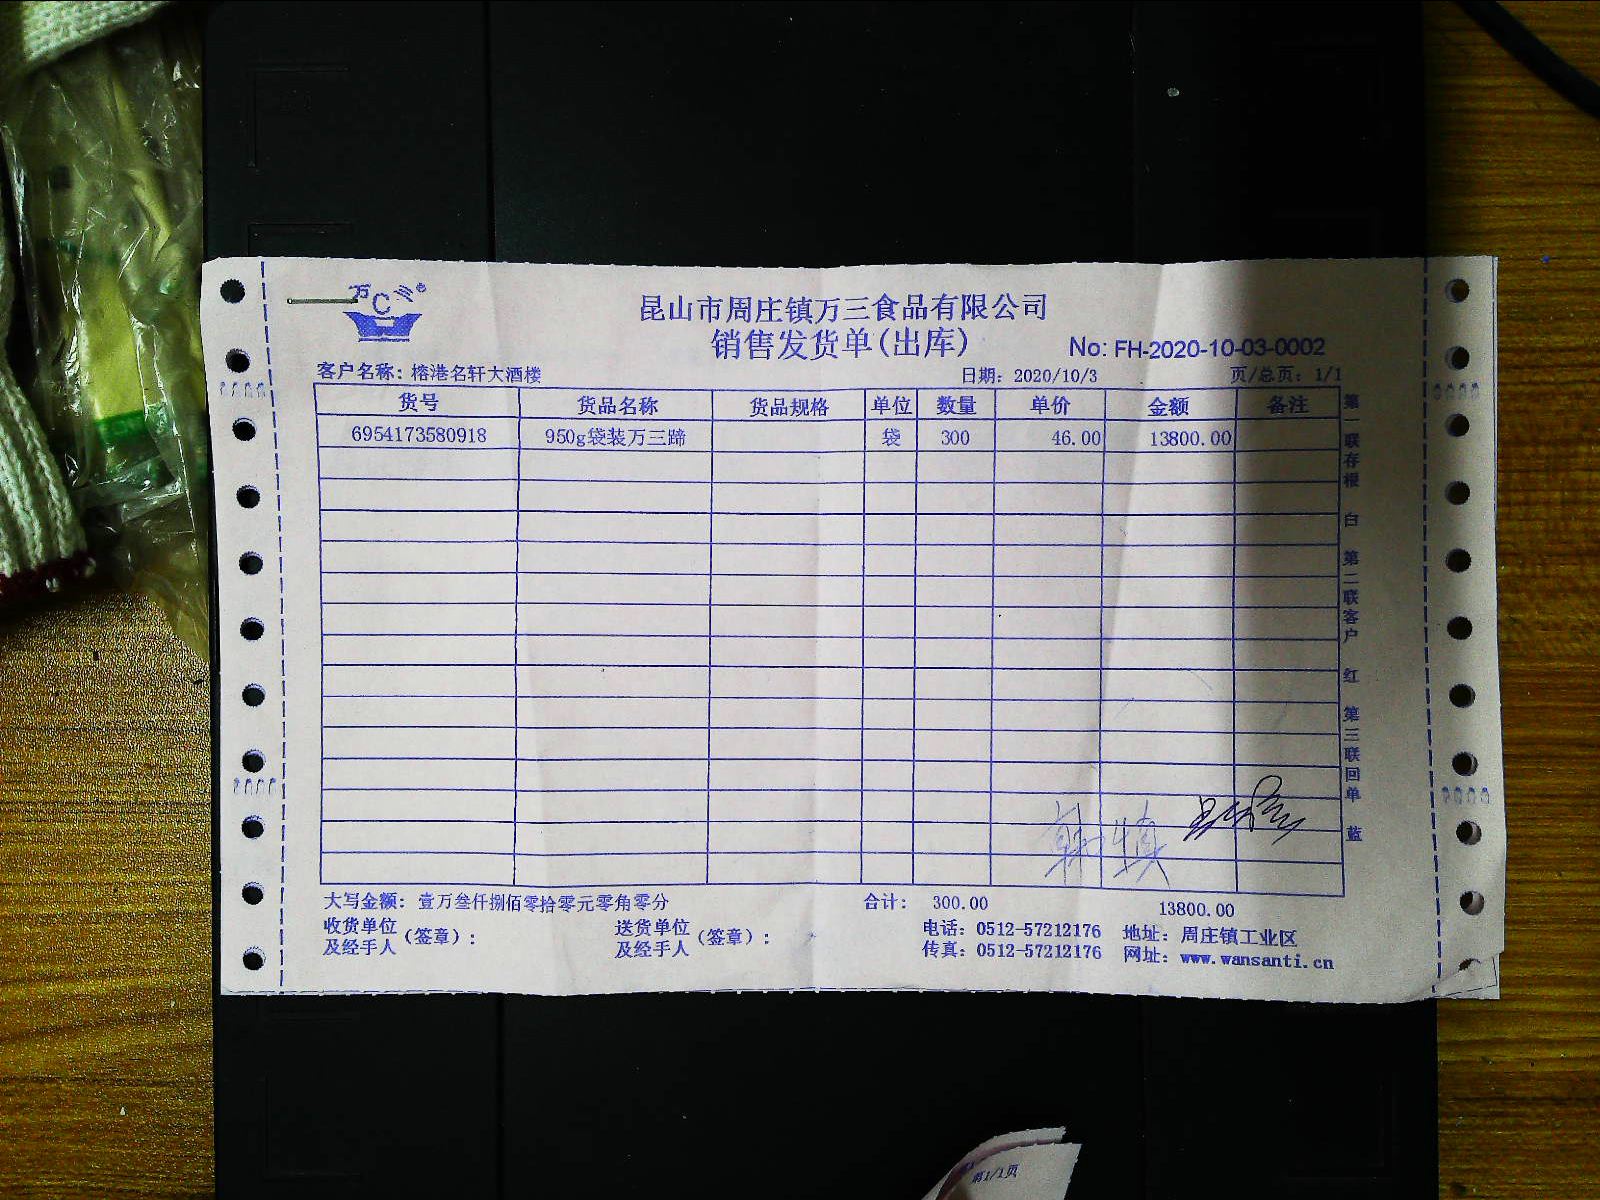 万三®
C
昆山市周庄镇万三食品有限公司
销售发货单(出库)
No: FH-2020-10-03-0002
客户名称: 榕港名轩大酒楼 日期: 2020/10/3 页/总页: 1/1
货号 货品名称 货品规格 单位 数量 单价 金额 备注
6954173580918 950g袋装万三蹄 袋 300 46.00 13800.00
第一联存根 白 第二联客户 红 第三联回单 蓝
韩慎
大写金额: 壹万叁仟捌佰零拾零元零角零分 合计: 300.00 13800.00
收货单位及经手人(签章): 送货单位及经手人(签章):
电话: 0512-57212176 地址: 周庄镇工业区
传真: 0512-57212176 网址: www.wansanti.cn
第1/1页